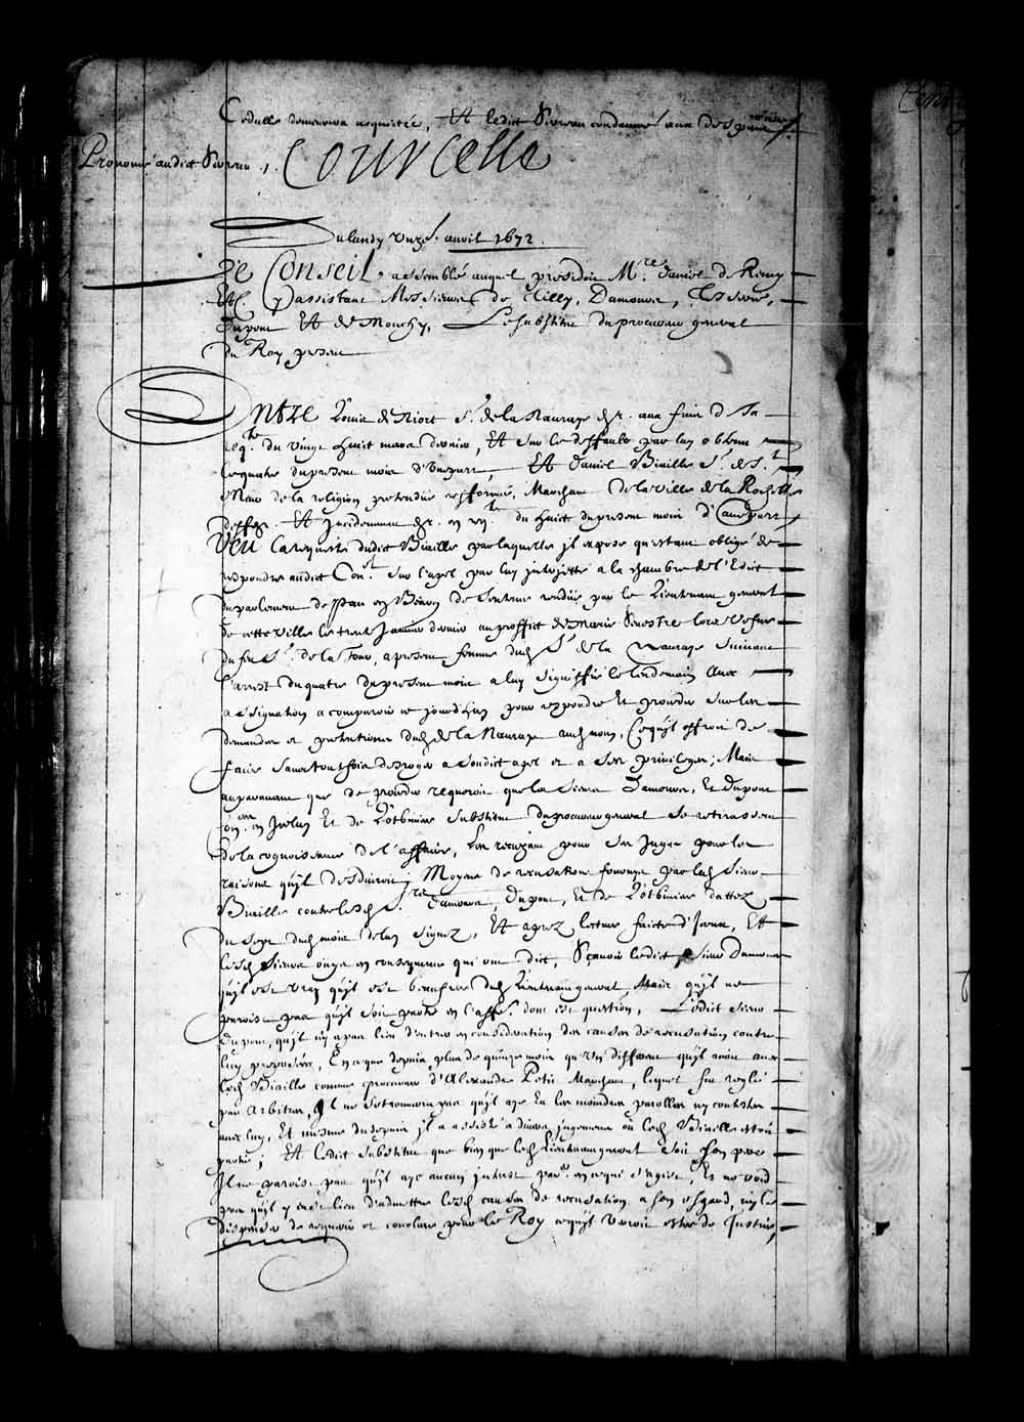 Cedulle demeurera acquittée, Et ledict Sivereau condamné aux despens
Prononcé audict Sivereau
Courcelle
Du lundy unzе. avril 1672
Le Conseil assemblé auquel presidoit Mre. Daniel de Remy
Etc. Y assistans Messieurs de Tilly, Damours, Tesserie,
Dupont Et de Mouchy, Le substitut du procureur general
du Roy present
Entre Louis de Niort Sr. de la Nauraye dr. aux fins de sa
reqte. du vingt huict mars dernier, Et sur le deffault par luy obtenu
le quatre du present mois d'une part Et Daniel Biaille Sr. de St.
Meur de la religion pretendue refformée, Marchant de la ville de la Rochelle
deffer. Et Incidemment dr. en rqte. du huict du present mois d'autre part
Veu la requeste dudict Biaille par laquelle il expose qu'estant obligé de
respondre audict Conel. sur l'apel par luy interjetté a la chambre de l'Edict
du parlement de Pau en Bearn de sentence rendue par le Lieutenant general
de cette ville le trente Janvier dernier au proffict de Marie Senestre lors vefve
du feu Sr. de la Tour, a present femme dud. Sr. de la Nauraye suivant
l'arrest du quatre du present mois a luy signiffié le lendemain Avec
assignation a comparoir ce jourd'huy pour respondre Et proceder sur les
demandes et pretentions dud. de la Nauraye aud. nom, Ce qu'il offroit de
faire sans toutesfois desroger a sondict apel et a ses privileges; Mais
auparavant que de proceder requeroit que les Sieurs Damours, Et Dupont
Coners. en Icelluy Et de Lotbiniere substitut du procureur general se retirassent
de la cognoissance de l'affaire, Les recusant pour ses Juges pour les
raisons qu'il desduiroit; Moyens de recusation fournys par led. Sieur
Biaille contre lesd. Srs. Damours, Dupont, Et de Lotbiniere dattez
du sept dud. mois de luy signez, Et aprez lecture faicte d'Iceux, Et
lesd. Sieurs ouys en consequence qui ont dict, Sçavoir ledict Sieur Damours
qu'il est vray qu'il est beaufrere dud. Lieutenant general, Mais qu'il ne
paroist pas qu'il soit partie en l'affre. dont est question, Ledict Sieur
Dupont, qu'il n'y a pas lieu d'entrer en consideration des causes de recusation contre
luy proposées, En ce que depuis plus de quinze mois qu'un different qu'il avoit avec
led. Biaille comme procureur d'Alexandre Petit Marchant, lequel fut reglé
par Arbitres, Il ne se trouvera pas qu'il aye Eu les moindres parolles ny contester
avec luy, Et mesme du depuis il a assisté a divers jugemens où led. Biaille estoit
partie; Et ledict substitut que bien que led. Lieutenant general soit son pere
Il ne paroist pas qu'il aye aucun interest parer. en ce qui s'agist, Et ne void
pas qu'il y ait lieu d'admettre lesd. causes de recusation a son esgard, ny le
dispenser de requerir et conclure pour le Roy ce qu'il verroit estre de Justice,